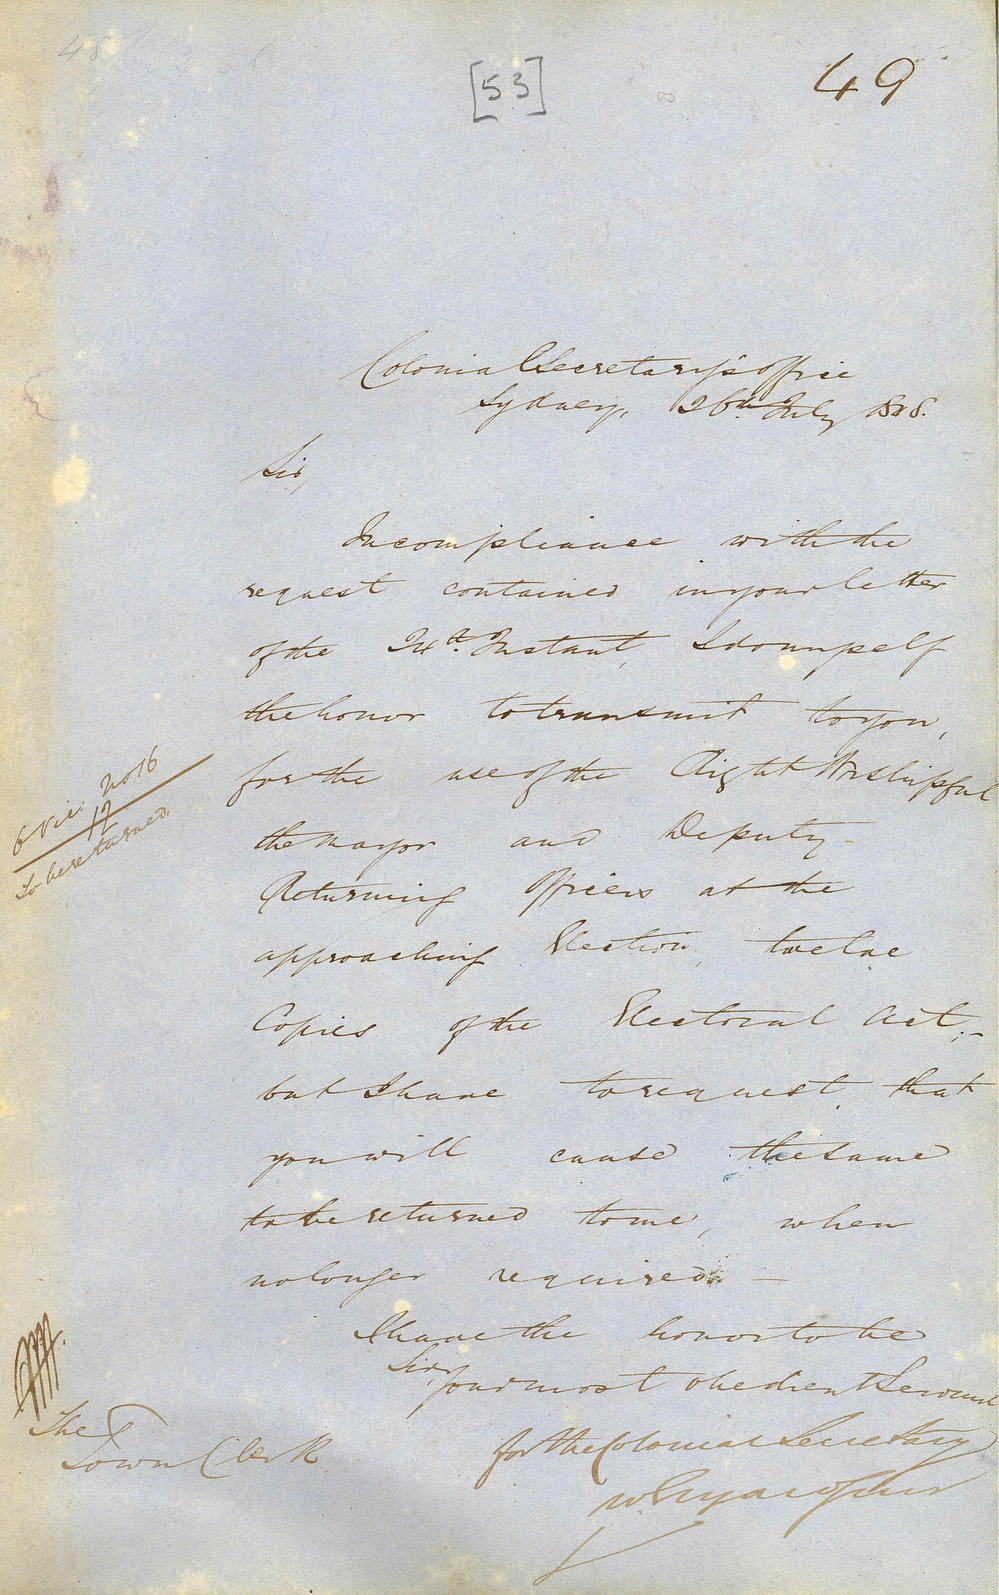 [53]
49
Colonial Secretary's Office
Sydney, 26th July 1848.
Sir,
In compliance with the
request contained in your letter
of the 24th Instant, I do myself
the honor to transmit to you,
for the use of the Right Worshipful
the Mayor and Deputy-
Returning Officers at the
approaching Election, twelve
Copies of the Electoral Act,-
but I have to request that
you will cause the same
to be returned to me, when
no longer required. —
I have the honor to be
Sir,
Your most obedient Servant
for the Colonial Secretary
6 Vic: No 16
12
To be returned.
The
Town Clerk